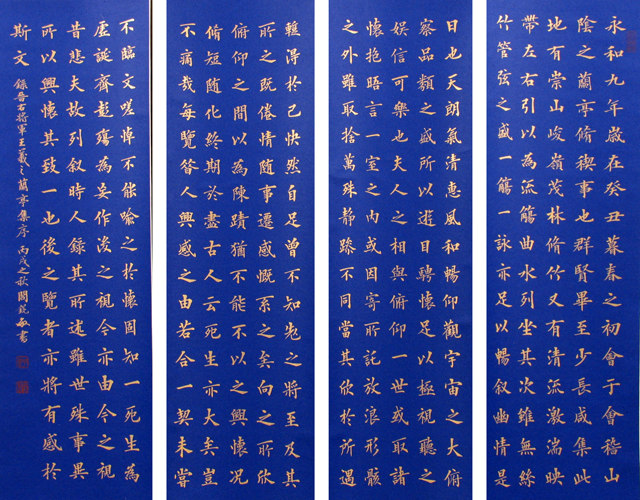 永和九年歲在癸丑暮春之初會于會稽山
陰之蘭亭脩稧事也群賢畢至少長咸集此
地有崇山峻嶺茂林脩竹又有清流激湍映
帶左右引以為流觴曲水列坐其次雖無絲
竹管弦之盛一觴一詠亦足以暢敘幽情是
日也天朗氣清惠風和暢仰觀宇宙之大俯
察品類之盛所以遊目騁懷足以極視聽之
娛信可樂也夫人之相與俯仰一世或取諸
懷抱晤言一室之內或因寄所託放浪形骸
之外雖取捨萬殊靜躁不同當其欣於所遇
蹔得於己快然自足曾不知老之將至及其
所之既倦情隨事遷感慨系之矣向之所欣
俯仰之間以為陳蹟猶不能不以之興懷況
脩短隨化終期於盡古人云死生亦大矣豈
不痛哉每覽昔人興感之由若合一契未嘗
不臨文嗟悼不能喻之於懷固知一死生為
虛誕齊彭殤為妄作後之視今亦由今之視
昔悲夫故列敘時人錄其所述雖世殊事異
所以興懷其致一也後之覽者亦將有感於
斯文
錄晉右將軍王羲之蘭亭集序 丙戌之秋 敏書